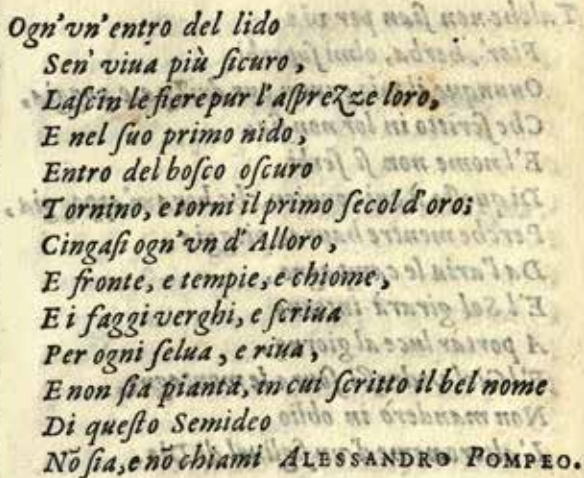 Ogn'vn'entro del lido
Sen' viua più ſicuro,
Laſcin le fierepur l'aſprezze loro,
E nel ſuo primo nido,
Entro del boſco oſcuro
Tornino, e torni il primo ſecol d'oro;
Cingaſi ogn'vn d'Alloro,
E fronte, e tempie, e chiome,
E i faggi verghi, e ſcriua
Per ogni ſelua, e riua,
E non ſia pianta, in cui ſcritto il bel nome
Di queſto Semideo
Nõ ſia, e nõ chiami ALESSANDRO POMPEO.